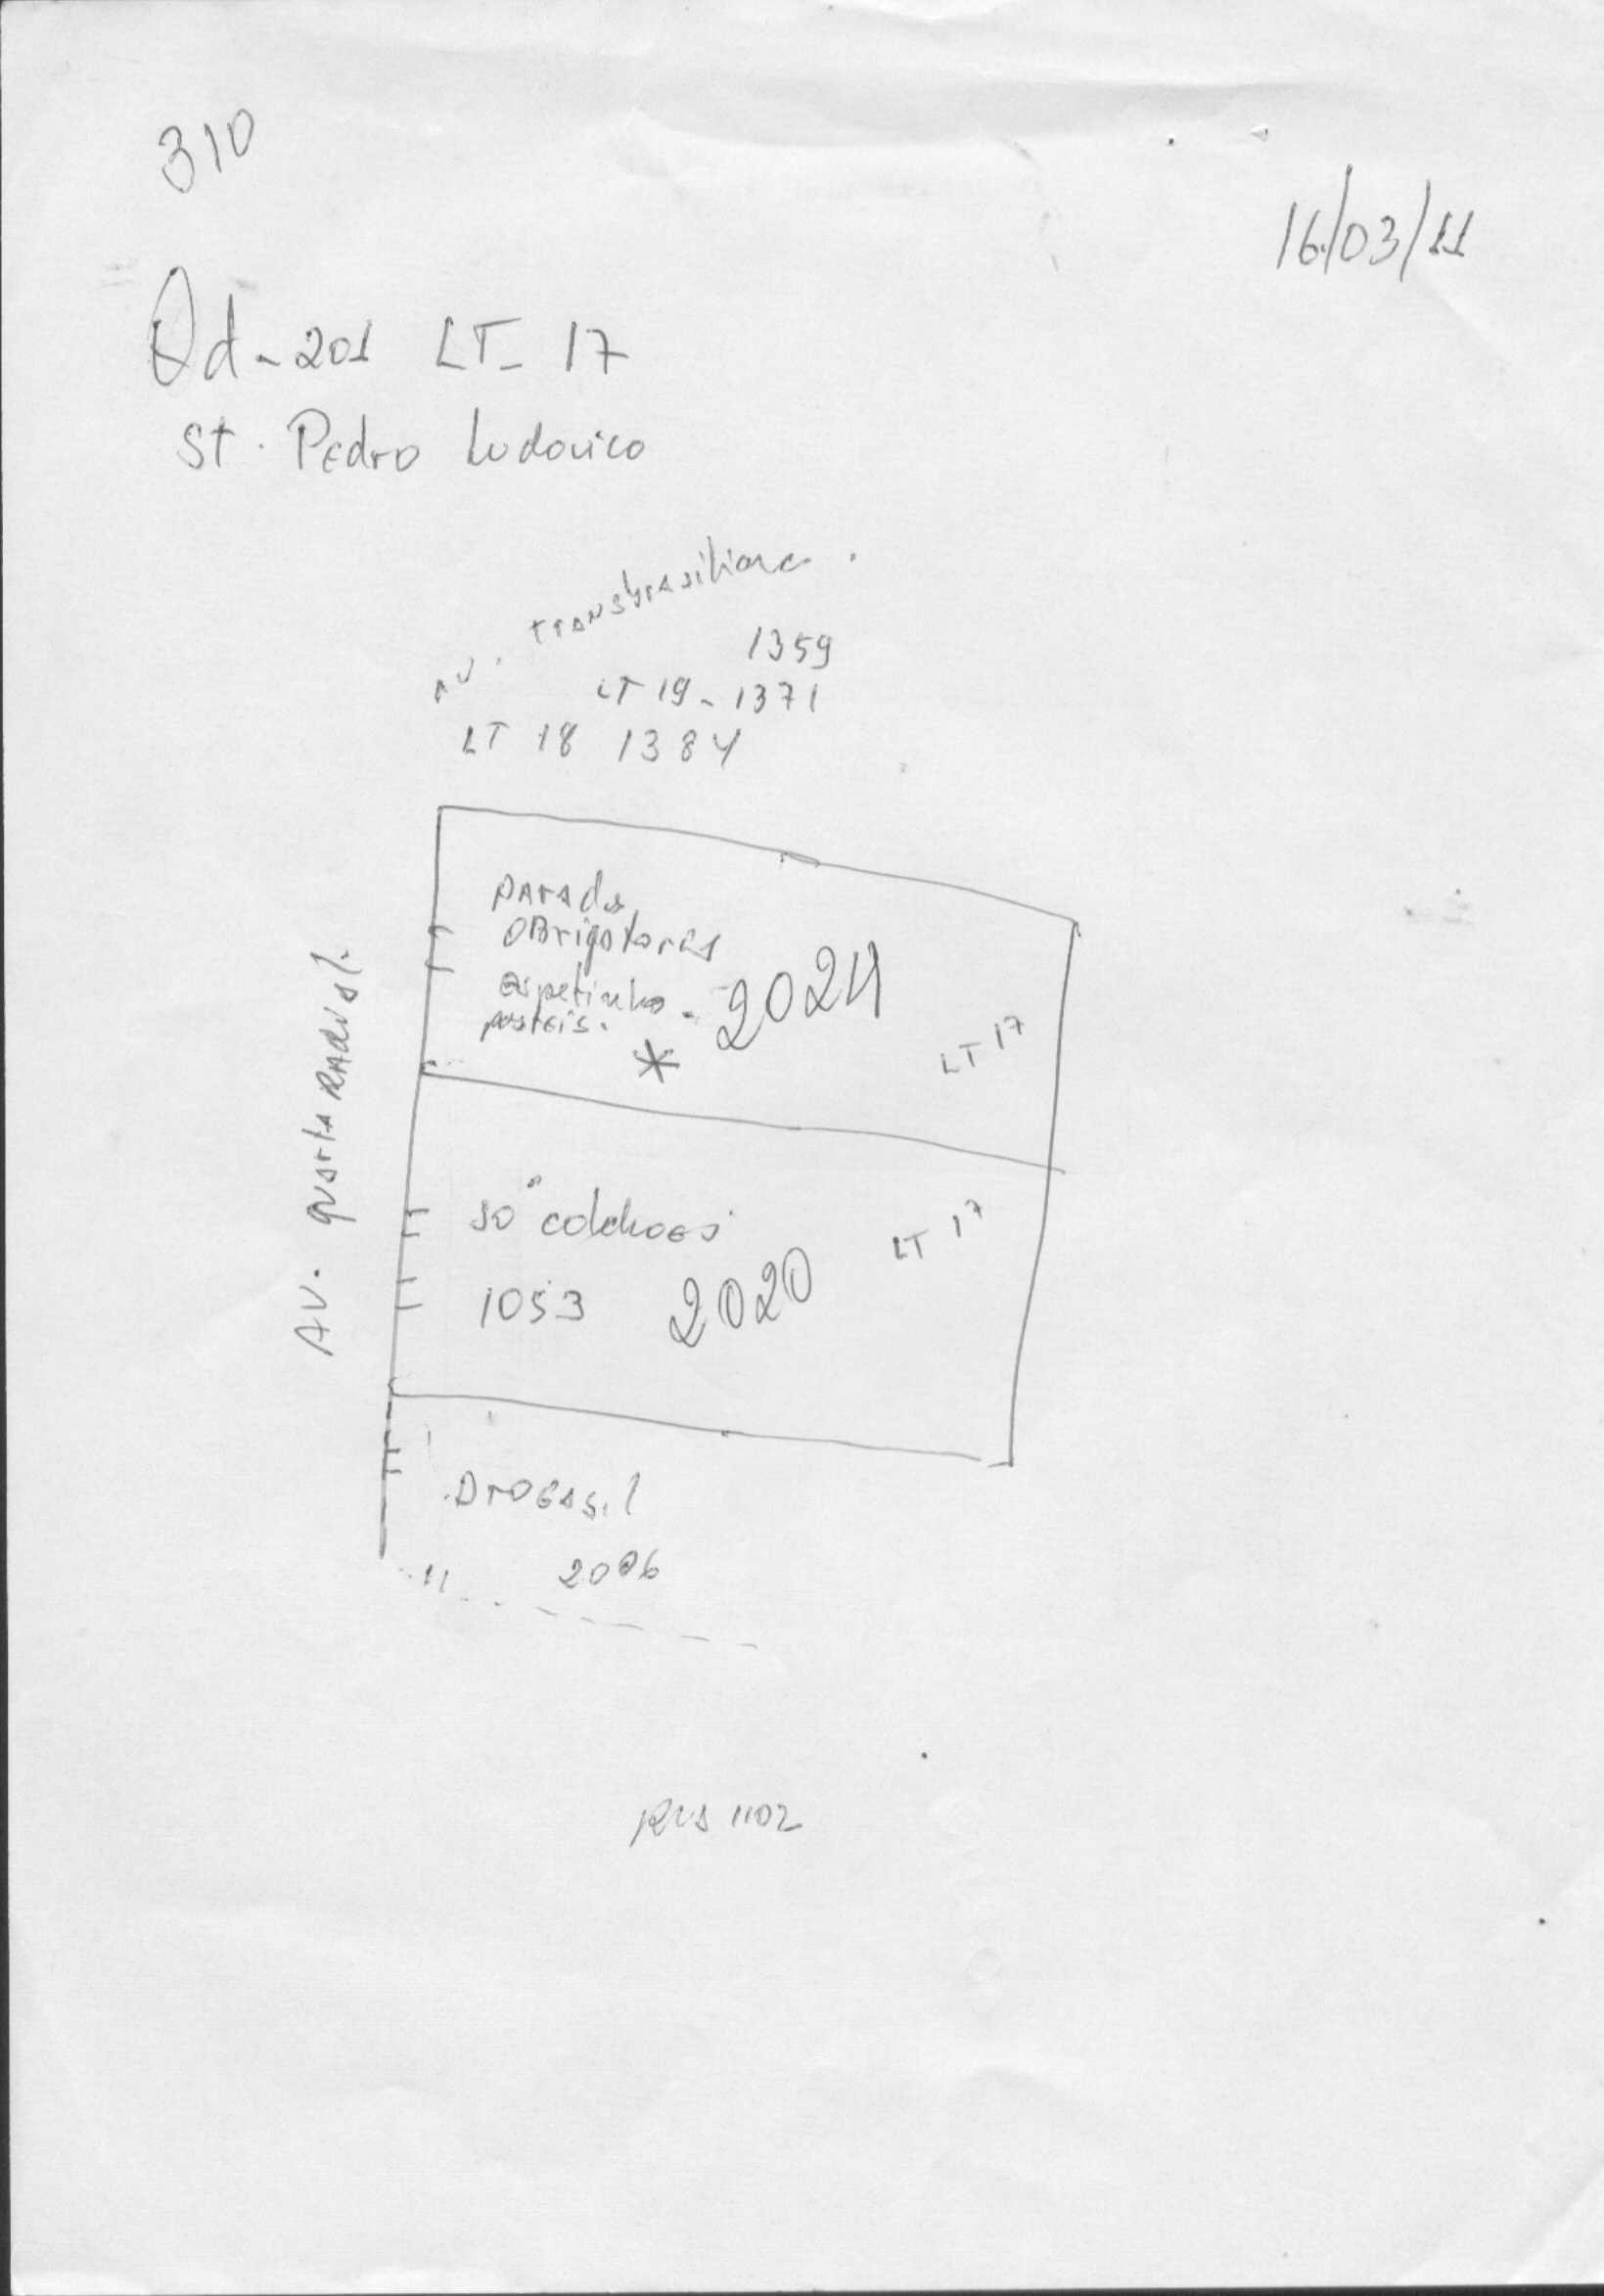 310
16/03/11
Qd - 201 LT - 17
St. Pedro Ludovico
AV. Transbrasiliana.
1359
LT 19 - 1371
LT 18 1384
Parada
Obrigatoria
espetinho - 2024
pasteis.
*
LT 17
AV. quarta Radial.
Só colchoes
LT 17
1053 2020
Drogasil
2006
Rua 1102